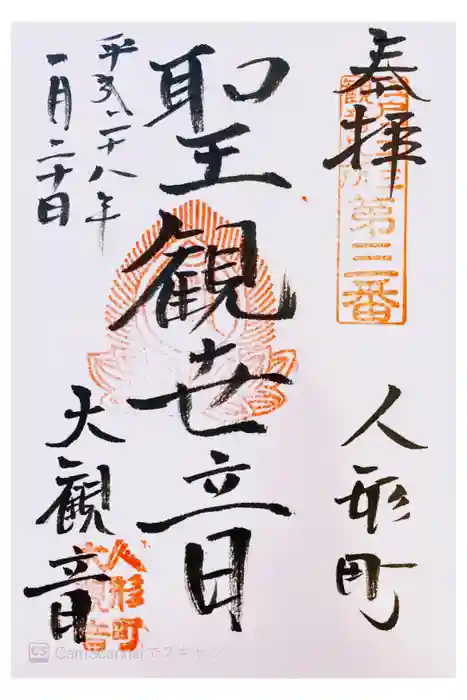 奉拝
第三番
人形町
聖観世音
平成二十八年
一月二十日
大観音
人形町
大観音
CS CamScannerでスキャン